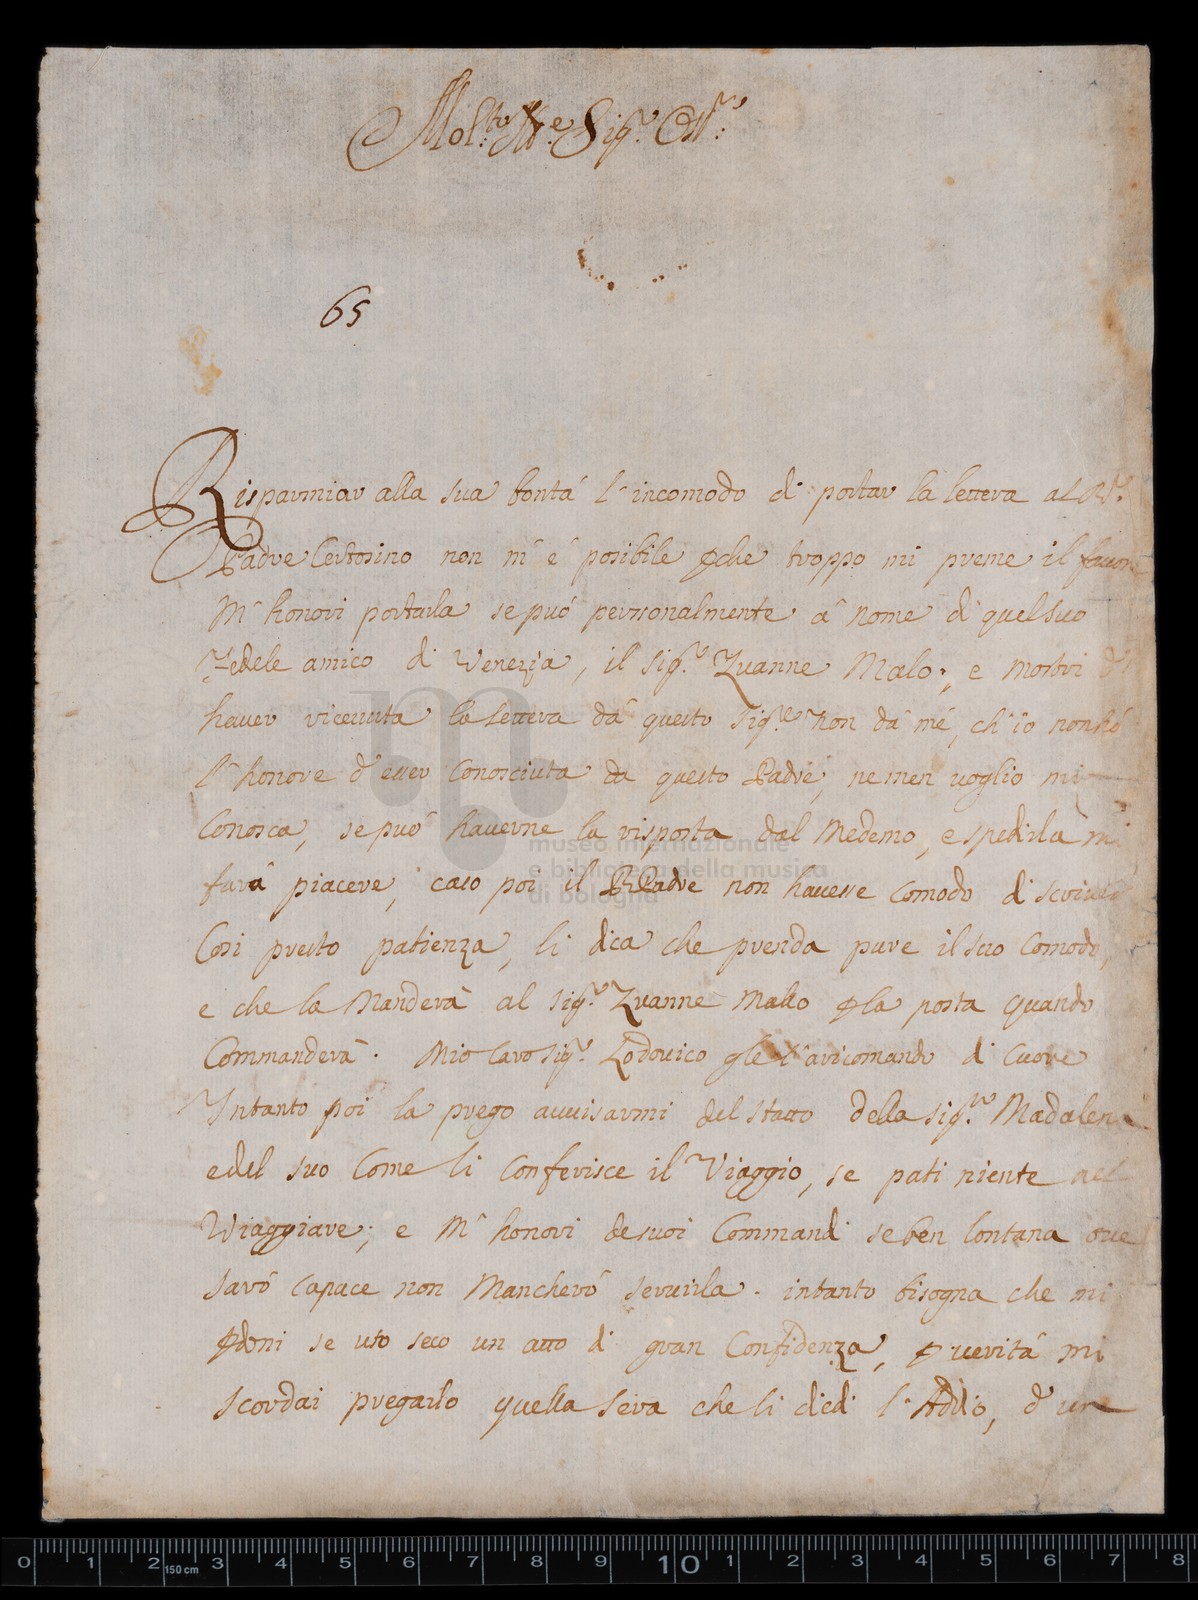 Mol.to Ill.e Sig.r Oss.r
65
Risparmiar alla sua bontá l'incomodo di portar la lettera al Rd.o
Padre Certosino non m'é posibile pche troppo mi preme il favore
M'honori portarla se può personalmente á nome di quel suo
Fedele amico di Venezia, il Sig.r Zuanne Malo; e mostri d'
haver ricevuta la lettera dá questo Sig.re non dá mé, ch'io non hó
l'honore d'esser Conosciuta da questo Padre, ne men voglio mi
Conosca, se può haverne la risposta dal Medemo, e spedirla mi
fará piacere, caso poi il RPadre non havesse Comodo di scriver
Cosi presto patienza, li dica che prenda pure il suo Comodo,
e che la Manderà al Sig.r Zuanne Mallo p la posta quando
Commanderà. Mio Caro Sig.r Lodovico gle l'aricomando di Cuore
Intanto poi la prego avvisarmi del Statto della Sig.ra Madalena
e del suo Come li Conferisce il Viaggio, se pati niente nel
Viaggiare, e M'honori de suoi Commandi se ben lontana ove
saró Capace non Mancheró servirla. intanto bisogna che mi
pdoni se uso seco un atto di gran Confidenza, p veritá mi
scordai pregarlo quella sera che li diedi l'Addio, d'une
museo internazionale
e biblioteca della musica
di bologna
0 1 2 3 4 5 6 7 8 9 10 1 2 3 4 5 6 7 8
150 cm